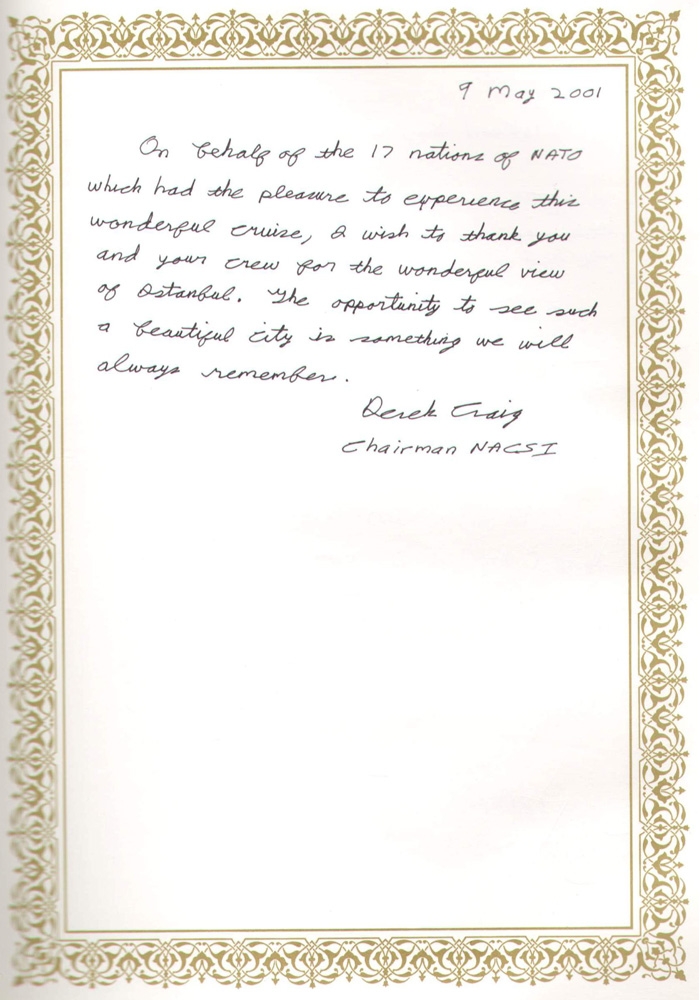 9 May 2001
On behalf of the 17 nations of NATO
which had the pleasure to experience this
wonderful cruise, I wish to thank you
and your crew for the wonderful view
of Istanbul. The opportunity to see such
a beautiful city is something we will
always remember.
Derek Craig
Chairman NACSI